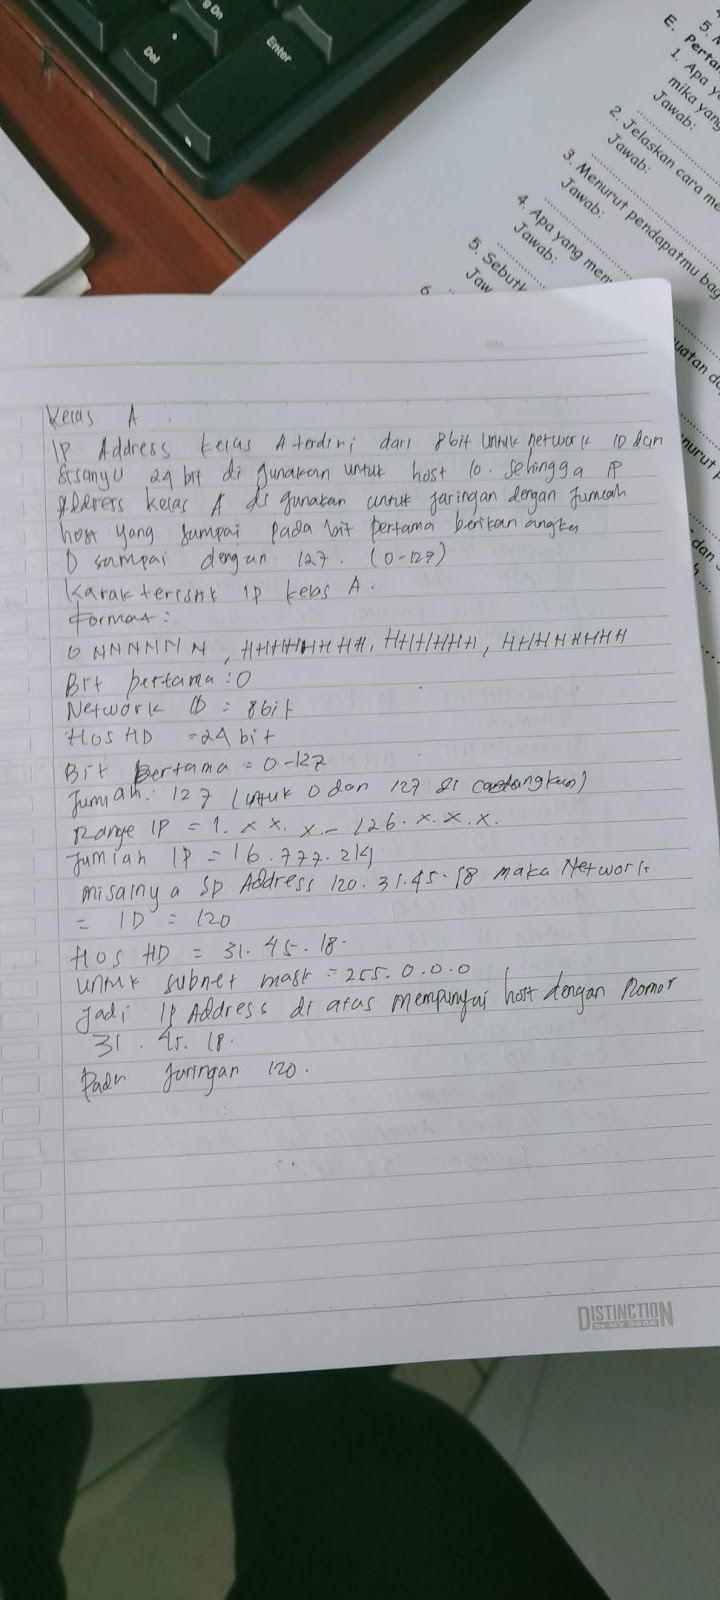 Del
Enter
5.
E. Pertan
1. Apa y
mika yang
Jawab:
2. Jelaskan cara me
Jawab:
3. Menurut pendapatmu bag
Jawab:
4. Apa yang mem
Jawab:
5. Sebutk
Jaw
6
uatan da
nurut
dan
Date
Kelas A.
IP Address kelas A terdiri dari 8bit untuk network ID dan
sisanya 24 bit di gunakan untuk host ID. Sehingga IP
Address kelas A di gunakan untuk jaringan dengan Jumlah
host yang sampai pada bit pertama berikan angka
0 sampai dengan 127. (0-127)
Karakteristik IP kelas A.
Format:
0 NNNNNN N, HHHHHHHH, HHHHHHH, HHHHHHHH
Bit pertama : 0
Network ID = 8bit
Hos HD = 24 bit
Bit Bertama = 0-127
Jumlah: 127 (untuk 0 dan 127 di cadangkan)
Range IP = 1. x x. x - 126. x. x. x.
Jumlah IP = 16.777.214
misalnya IP Address 120.31.45.18 maka Network
= ID = 120
Hos HD = 31.45.18.
untuk subnet mask = 255.0.0.0
Jadi IP Address di atas mempunyai host dengan Nomor
31.45.18.
Pada Jaringan 120.
DISTINCTION
by MY BOOK